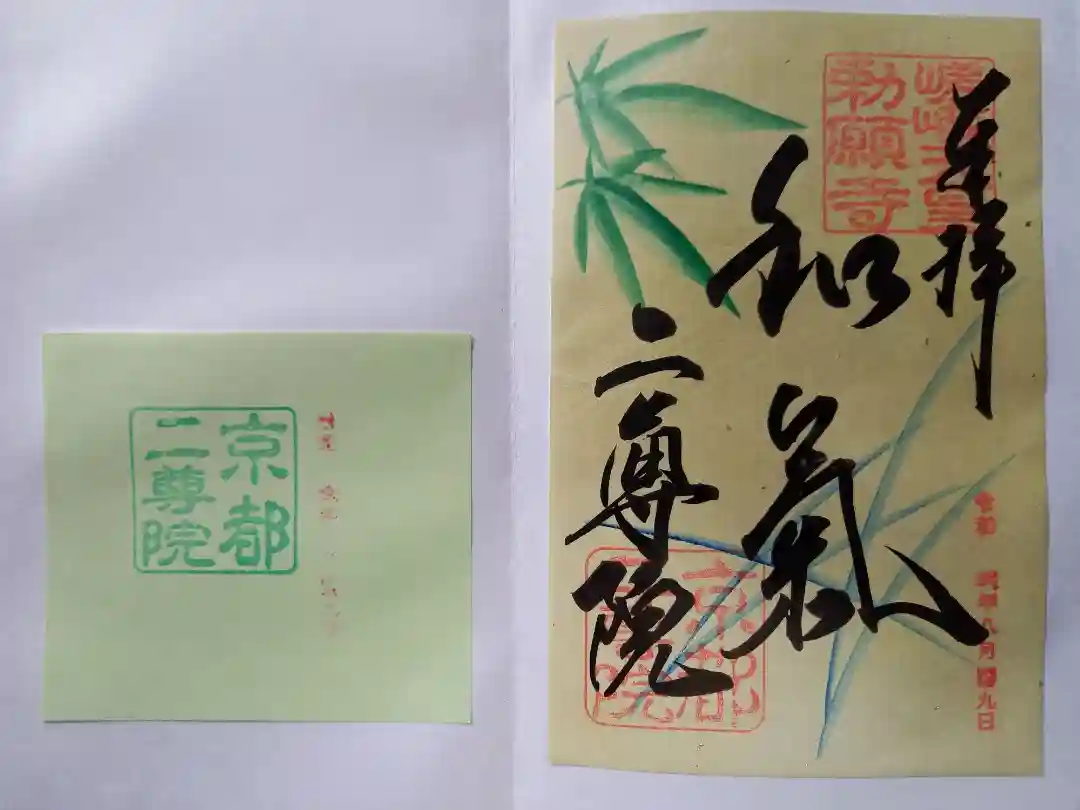 奉拝
嵯峨天皇
勅願寺
和氣
二尊院
京都
二尊院
令和 年八月 九日
京都
二尊院